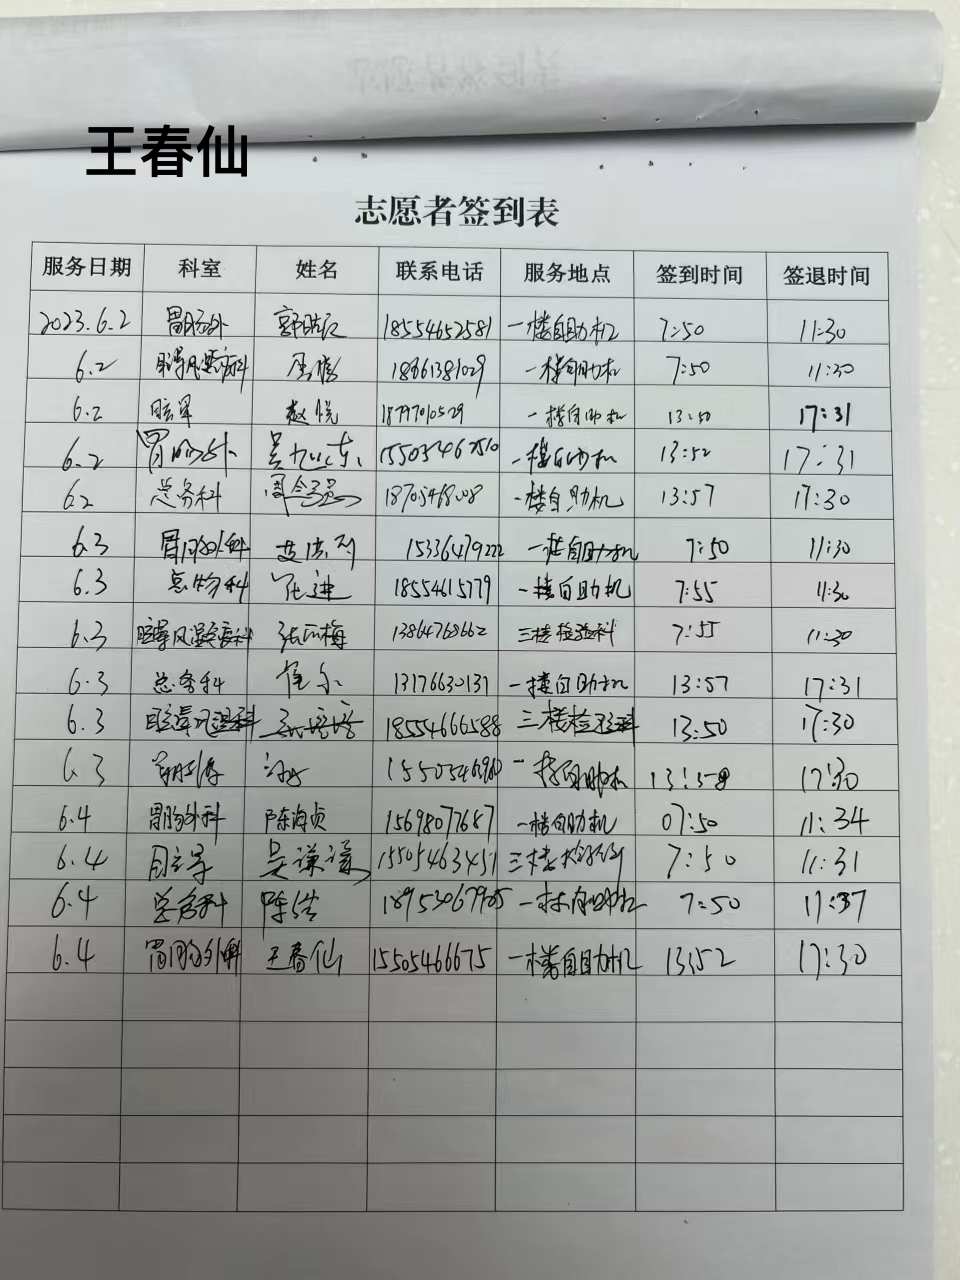 王春仙
志愿者签到表
服务日期 科室 姓名 联系电话 服务地点 签到时间 签退时间
2023.6.2 胃肠外 18554652581 一楼自助机 7:50 11:30
6.2 眩晕风湿病科 18661381029 一楼自助机 7:50 11:30
6.2 眩晕 赵悦 一楼自助机 13:50 17:31
6.2 胃肠外 一楼自助机 13:52 17:31
6.2 总务科 一楼自助机 13:57 17:30
6.3 胃肠外科 15336479222 一楼自助机 7:50 11:30
6.3 总务科 张进 18554615779 一楼自助机 7:55 11:30
6.3 眩晕风湿病科 13864768662 三楼检验科 7:55 11:30
6.3 总务科 13176630131 一楼自助机 13:57 17:31
6.3 眩晕风湿科 18554666588 三楼检验科 13:50 17:30
6.3 一楼自助机 13:58 17:30
6.4 胃肠外科 陈海贞 15698077657 一楼自助机 07:50 11:34
6.4 吴谦谦 15505463451 7:50 11:31
6.4 总务科 陈浩 一楼自助机 7:50 11:37
6.4 胃肠外科 王春仙 15505466675 一楼自助机 13:52 17:30